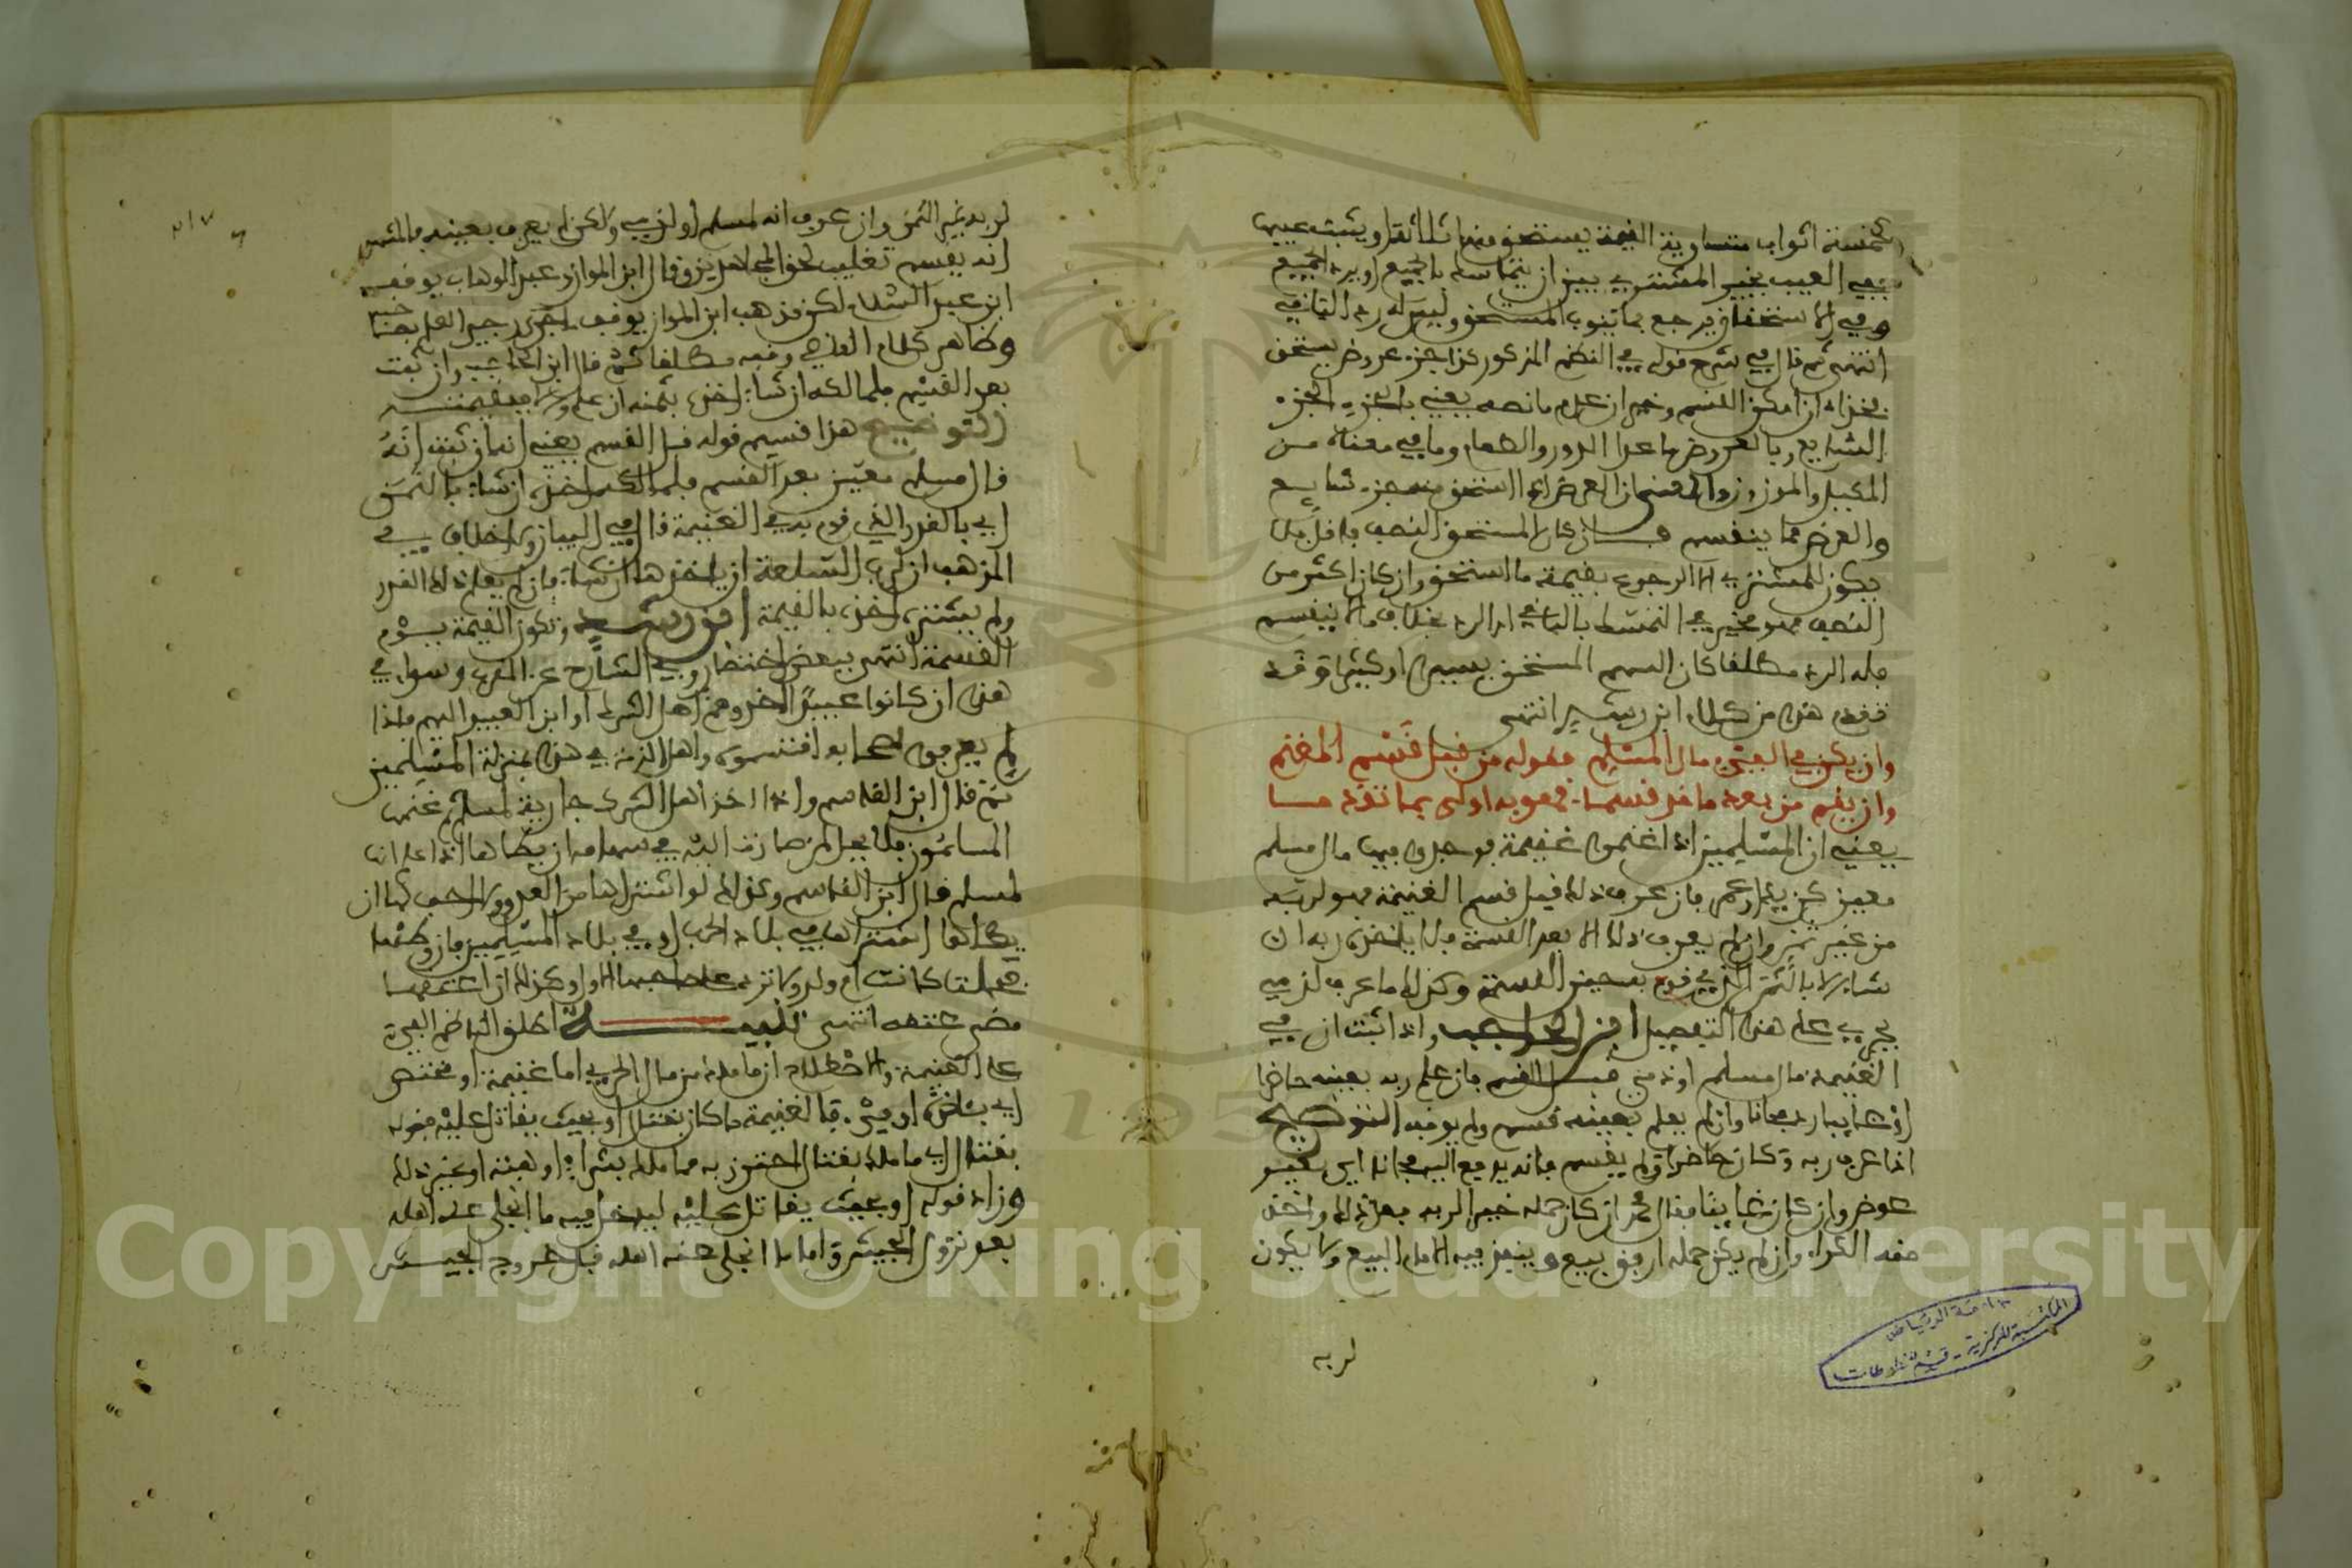 كخمسة اثواب متساوية القيمة يستحق منها ثلاثة او يثبت عيبها
ففي العيب يخير المشتري بين ان يتماسك بالجميع او يرد الجميع
وفي الاستحقاق يرجع بما ينوب المستحق وليس له رد الباقي
انتهى ثم قال في شرح قوله في النظم المذكور كذا جزء عروض يستحق
بجزاه ان امكن القسم وخير ان عدم ما نصه يعني بالجزء الجزء
الشايع وبالعروض ما عدا الدور والطعام وما في معناه من
المكيل والموزون والمعنى ان العرض اذا استحق منه جزء شايع
والعرض مما ينقسم فان كان المستحق النصف فاقل فلا
يكون للمشتري الا الرجوع بقيمة ما استحق وان كان اكثر من
النصف فهو مخير في التمسك بالباقي او الرد بخلاف ما لا ينقسم
فله الرد مطلقا كان السهم المستحق يسيرا او كثيرا وقد
تقدم هذا من كلام ابن رشد انتهى
وان يكن في الفيء مال المسلم فهو له من قبل قسم المغنم
وان يقم من بعد ما قد قسما فهو به اولى بما تقدما
يعني ان المسلمين اذا غنموا غنيمة فوجدوا فيها مال مسلم
معين كزيد او عمر فان عرف ذلك قبل قسم الغنيمة فهو لربه
من غير ثمن وان لم يعرف ذلك الا بعد القسمة فلا ياخذه ربه ان
شاء الا بالثمن الذي قوم به حين القسمة وكذلك ما عرف لذمي
يجري على هذا التفصيل ابن الحاجب واذا ثبت ان في
الغنيمة مال مسلم او ذمي قبل القسم فان علم ربه بعينه حاضرا
او غايبا رد مجانا وان لم يعلم بعينه قسم ولم يوقف التوضيح
اذا عرف ربه وكان حاضرا لم يقسم فانه يدفع اليه مجانا اي بغير
عوض وان كان غايبا فقال محمد ان كان حمله خير الربه فعل ذلك واخذ
منه الكراء وان لم يكن حمله ارفق بيع وينفذ فيه الامام البيع ولا يكون
لربه
لربه غير الثمن وان عرف انه لمسلم او لذمي ولكن لم يعرف بعينه فالمشهور
انه يقسم تغليب لحق المجاهدين وقال ابن المواز وعبد الوهاب يوقف
ابن عبد السلام لكن مذهب ابن المواز يوقف
وظاهر كلام القاضي وقفه مطلقا ثم قال ابن الحاجب وان ثبت
بعد القسم فلمالكه ان شاء اخذه بثمنه ان علم والا فبقيمته
التوضيح هذا قسيم قوله قبل القسم يعني انه ان ثبت انه
مال مسلم معين بعد القسم فلمالكه اخذه ان شاء بالثمن
اي بالقدر الذي قوم به في الغنيمة قال في البيان ولا خلاف في
المذهب ان لرب السلعة ان ياخذها ان شاء فان لم يعلم ذلك القدر
ولم يشتر اخذه بالقيمة ابن رشد وتكون القيمة يوم
القسمة انتهى ببعض اختصار وفي الشارح عن المقرب وسواء في
هذا ان كانوا عبيدا اخذوهم اهل الشرك او ابق العبيد اليهم فاذا
لم يعرفوا اصحابه اقتسموه واهل الذمة في هذا بمنزلة المسلمين
ثم قال ابن القاسم واذا اخذ اهل الشرك جارية لمسلم ثم غنمها
المسلمون فلا يحل لمن صارت اليه في سهامه ان يطاها اذا علم انها
لمسلم قال ابن القاسم وكذلك لو اشتراها من العدو ولا احب له ان
يطاها اشتراها في بلاد الحرب او في بلاد المسلمين فان وطئها
فحملت كانت ام ولد ولا ترد على صاحبها الاول وكذلك ان اعتقها
مضى عتقه انتهى تنبيه اطلق الناظم الفيء
على الغنيمة والاصطلاح ان ما ملك من مال الحربي اما غنيمة او مختص
اي باخذه او فيء فالغنيمة ما كان بقتال او بحيث يقاتل عليه فقوله
بقتال اي ما ملك بقتال احترز به مما ملك بشراء او هبة او غير ذلك
وزاد قوله او بحيث يقاتل عليه ليدخل فيه ما انجلى عنه اهله
بعد نزول الجيش واما ما انجلى عنه اهله قبل خروج الجيش
جامعة الرياض
المكتبة المركزية - قسم المخطوطات
Copyright © King Saud University
1957